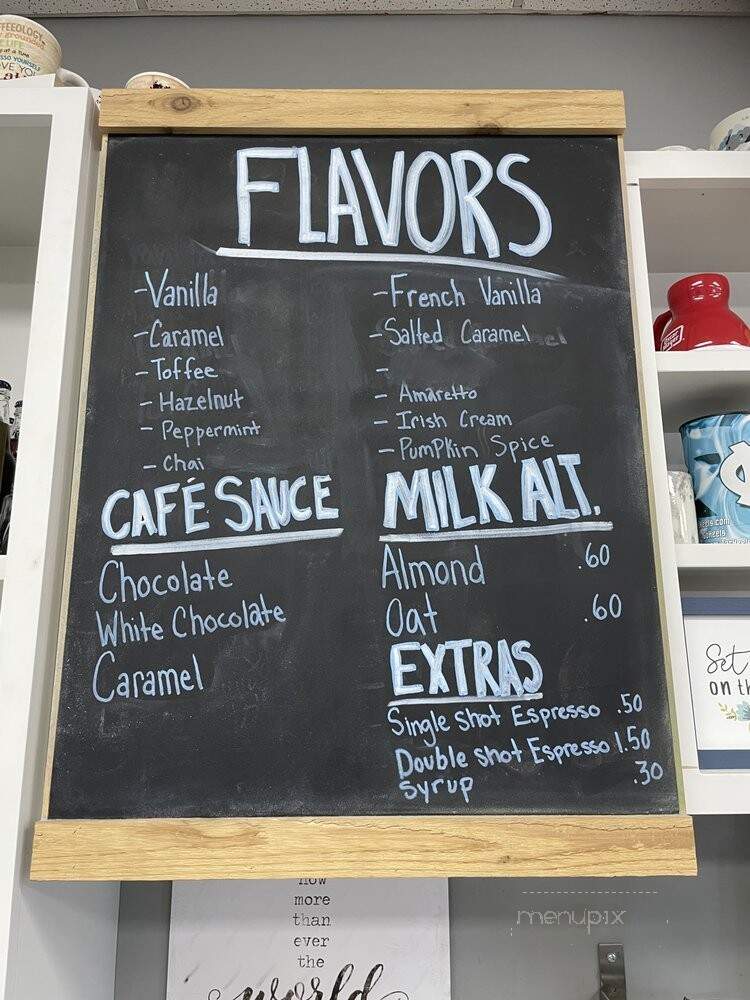 FLAVORS
-Vanilla
-Caramel
-Toffee
- Hazelnut
- Peppermint
- Chai
-French Vanilla
-Salted Caramel
-
- Amaretto
- Irish Cream
-Pumpkin Spice
CAFÉ SAUCE
Chocolate
White Chocolate
Caramel
MILK ALT.
Almond .60
Oat .60
EXTRAS
Single shot Espresso .50
Double shot Espresso 1.50
Syrup .30
now
more
than
ever
the
world
Set
on th
menupix